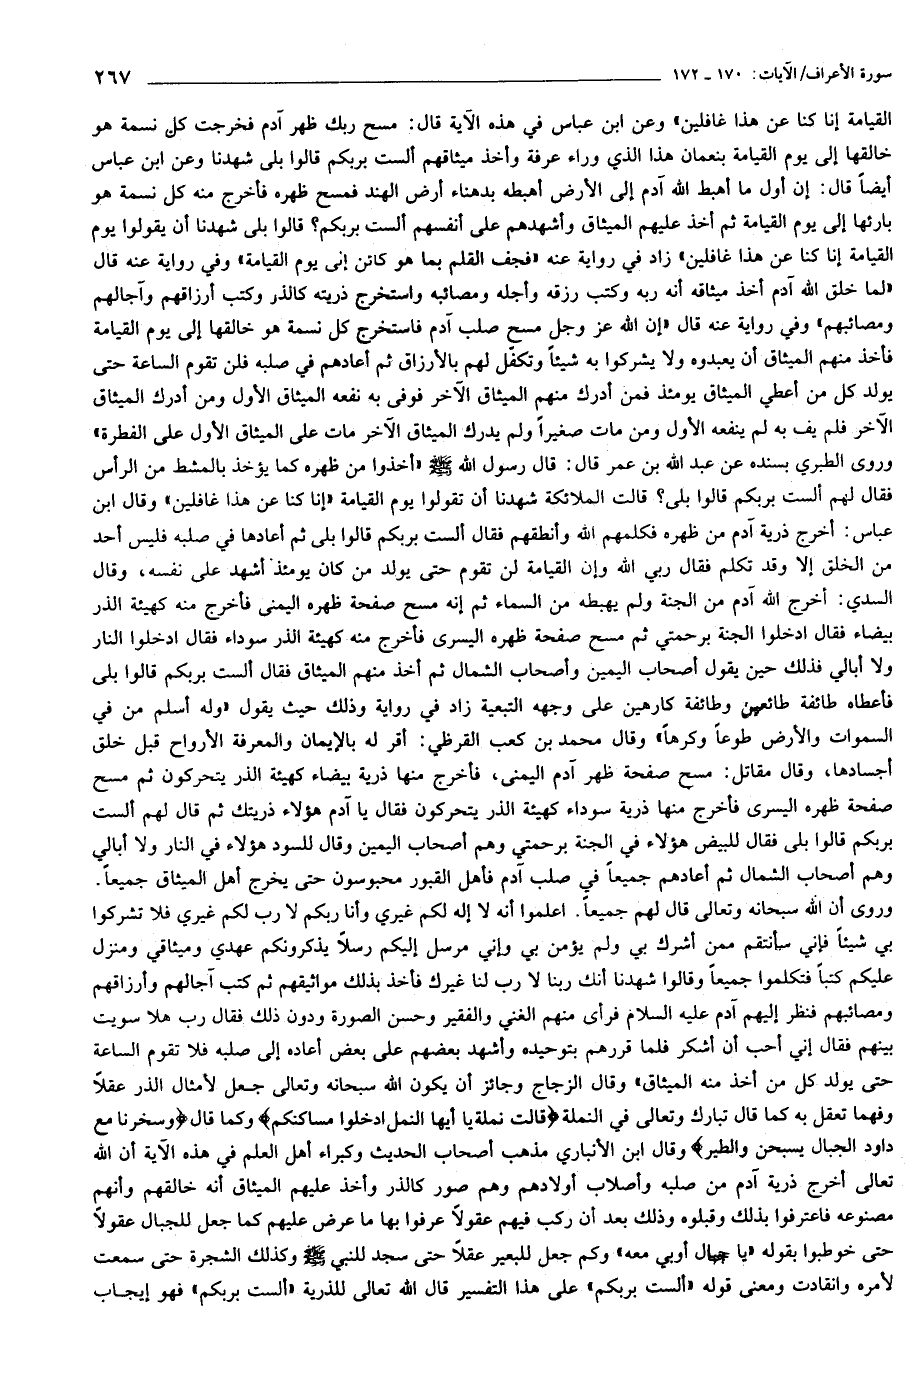 سورة الأعراف/ الآيات: ١٧٠ ـ ١٧٢ ٢٦٧
القيامة إنا كنا عن هذا غافلين» وعن ابن عباس في هذه الآية قال: مسح ربك ظهر آدم فخرجت كل نسمة هو
خالقها إلى يوم القيامة بنعمان هذا الذي وراء عرفة وأخذ ميثاقهم ألست بربكم قالوا بلى شهدنا وعن ابن عباس
أيضاً قال: إن أول ما أهبط الله آدم إلى الأرض أهبطه بدهناء أرض الهند فمسح ظهره فأخرج منه كل نسمة هو
بارئها إلى يوم القيامة ثم أخذ عليهم الميثاق وأشهدهم على أنفسهم ألست بربكم؟ قالوا بلى شهدنا أن يقولوا يوم
القيامة إنا كنا عن هذا غافلين» زاد في رواية عنه «فجف القلم بما هو كائن إلى يوم القيامة» وفي رواية عنه قال
«لما خلق الله آدم أخذ ميثاقه أنه ربه وكتب رزقه وأجله ومصائبه واستخرج ذريته كالذر وكتب أرزاقهم وآجالهم
ومصائبهم» وفي رواية عنه قال «إن الله عز وجل مسح صلب آدم فاستخرج كل نسمة هو خالقها إلى يوم القيامة
فأخذ منهم الميثاق أن يعبدوه ولا يشركوا به شيئاً وتكفّل لهم بالأرزاق ثم أعادهم في صلبه فلن تقوم الساعة حتى
يولد كل من أعطي الميثاق يومئذ فمن أدرك منهم الميثاق الآخر فوفى به نفعه الميثاق الأول ومن أدرك الميثاق
الآخر فلم يف به لم ينفعه الأول ومن مات صغيراً ولم يدرك الميثاق الآخر مات على الميثاق الأول على الفطرة»
وروى الطبري بسنده عن عبد الله بن عمر قال: قال رسول الله ﷺ «أخذوا من ظهره كما يؤخذ بالمشط من الرأس
فقال لهم ألست بربكم قالوا بلى؟ قالت الملائكة شهدنا أن تقولوا يوم القيامة «إنا كنا عن هذا غافلين» وقال ابن
عباس: أخرج ذرية آدم من ظهره فكلمهم الله وأنطقهم فقال ألست بربكم قالوا بلى ثم أعادها في صلبه فليس أحد
من الخلق إلا وقد تكلم فقال ربي الله وإن القيامة لن تقوم حتى يولد من كان يومئذ أشهد على نفسه، وقال
السدي: أخرج الله آدم من الجنة ولم يهبطه من السماء ثم إنه مسح صفحة ظهره اليمنى فأخرج منه كهيئة الذر
بيضاء فقال ادخلوا الجنة برحمتي ثم مسح صفحة ظهره اليسرى فأخرج منه كهيئة الذر سوداء فقال ادخلوا النار
ولا أبالي فذلك حين يقول أصحاب اليمين وأصحاب الشمال ثم أخذ منهم الميثاق فقال ألست بربكم قالوا بلى
فأعطاه طائفة طائعين وطائفة كارهين على وجهه التبعية زاد في رواية وذلك حيث يقول «وله أسلم من في
السموات والأرض طوعاً وكرهاً» وقال محمد بن كعب القرظي: أقر له بالإيمان والمعرفة الأرواح قبل خلق
أجسادها، وقال مقاتل: مسح صفحة ظهر آدم اليمنى، فأخرج منها ذرية بيضاء كهيئة الذر يتحركون ثم مسح
صفحة ظهره اليسرى فأخرج منها ذرية سوداء كهيئة الذر يتحركون فقال يا آدم هؤلاء ذريتك ثم قال لهم ألست
بربكم قالوا بلى فقال للبيض هؤلاء في الجنة برحمتي وهم أصحاب اليمين وقال للسود هؤلاء في النار ولا أبالي
وهم أصحاب الشمال ثم أعادهم جميعاً في صلب آدم فأهل القبور محبوسون حتى يخرج أهل الميثاق جميعاً.
وروى أن الله سبحانه وتعالى قال لهم جميعاً. اعلموا أنه لا إله لكم غيري وأنا ربكم لا رب لكم غيري فلا تشركوا
بي شيئاً فإني سأنتقم ممن أشرك بي ولم يؤمن بي وإني مرسل إليكم رسلاً يذكرونكم عهدي وميثاقي ومنزل
عليكم كتباً فتكلموا جميعاً وقالوا شهدنا أنك ربنا لا رب لنا غيرك فأخذ بذلك مواثيقهم ثم كتب آجالهم وأرزاقهم
ومصائبهم فنظر إليهم آدم عليه السلام فرأى منهم الغني والفقير وحسن الصورة ودون ذلك فقال رب هلا سويت
بينهم فقال إني أحب أن أشكر فلما قررهم بتوحيده وأشهد بعضهم على بعض أعاده إلى صلبه فلا تقوم الساعة
حتى يولد كل من أخذ منه الميثاق» وقال الزجاج وجائز أن يكون الله سبحانه وتعالى جعل لأمثال الذر عقلاً
وفهما تعقل به كما قال تبارك وتعالى في النملة ﴿قالت نملة يا أيها النمل ادخلوا مساكنكم﴾ وكما قال ﴿وسخرنا مع
داود الجبال يسبحن والطير﴾ وقال ابن الأنباري مذهب أصحاب الحديث وكبراء أهل العلم في هذه الآية أن الله
تعالى أخرج ذرية آدم من صلبه وأصلاب أولادهم وهم صور كالذر وأخذ عليهم الميثاق أنه خالقهم وأنهم
مصنوعه فاعترفوا بذلك وقبلوه وذلك بعد أن ركب فيهم عقولاً عرفوا بها ما عرض عليهم كما جعل للجبال عقولاً
حتى خوطبوا بقوله «يا جبال أوبي معه» وكم جعل للبعير عقلاً حتى سجد للنبي ﷺ وكذلك الشجرة حتى سمعت
لأمره وانقادت ومعنى قوله «ألست بربكم» على هذا التفسير قال الله تعالى للذرية «ألست بربكم» فهو إيجاب